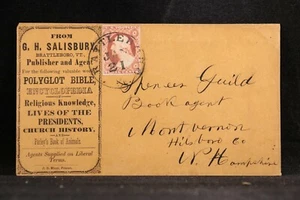 FROM
G. H. SALISBURY,
BRATTLEBORO, VT.,
Publisher and Agent
For the following valuable works
POLYGLOT BIBLE,
ENCYCLOPEDIA
OF
Religious Knowledge,
LIVES OF THE
PRESIDENTS,
CHURCH HISTORY,
AND
Farley's Book of Animals.
Agents Supplied on Liberal
Terms.
21
Spencer Guild
Book agent
Mont vernon
Hilsboro Co
N. Hampshire